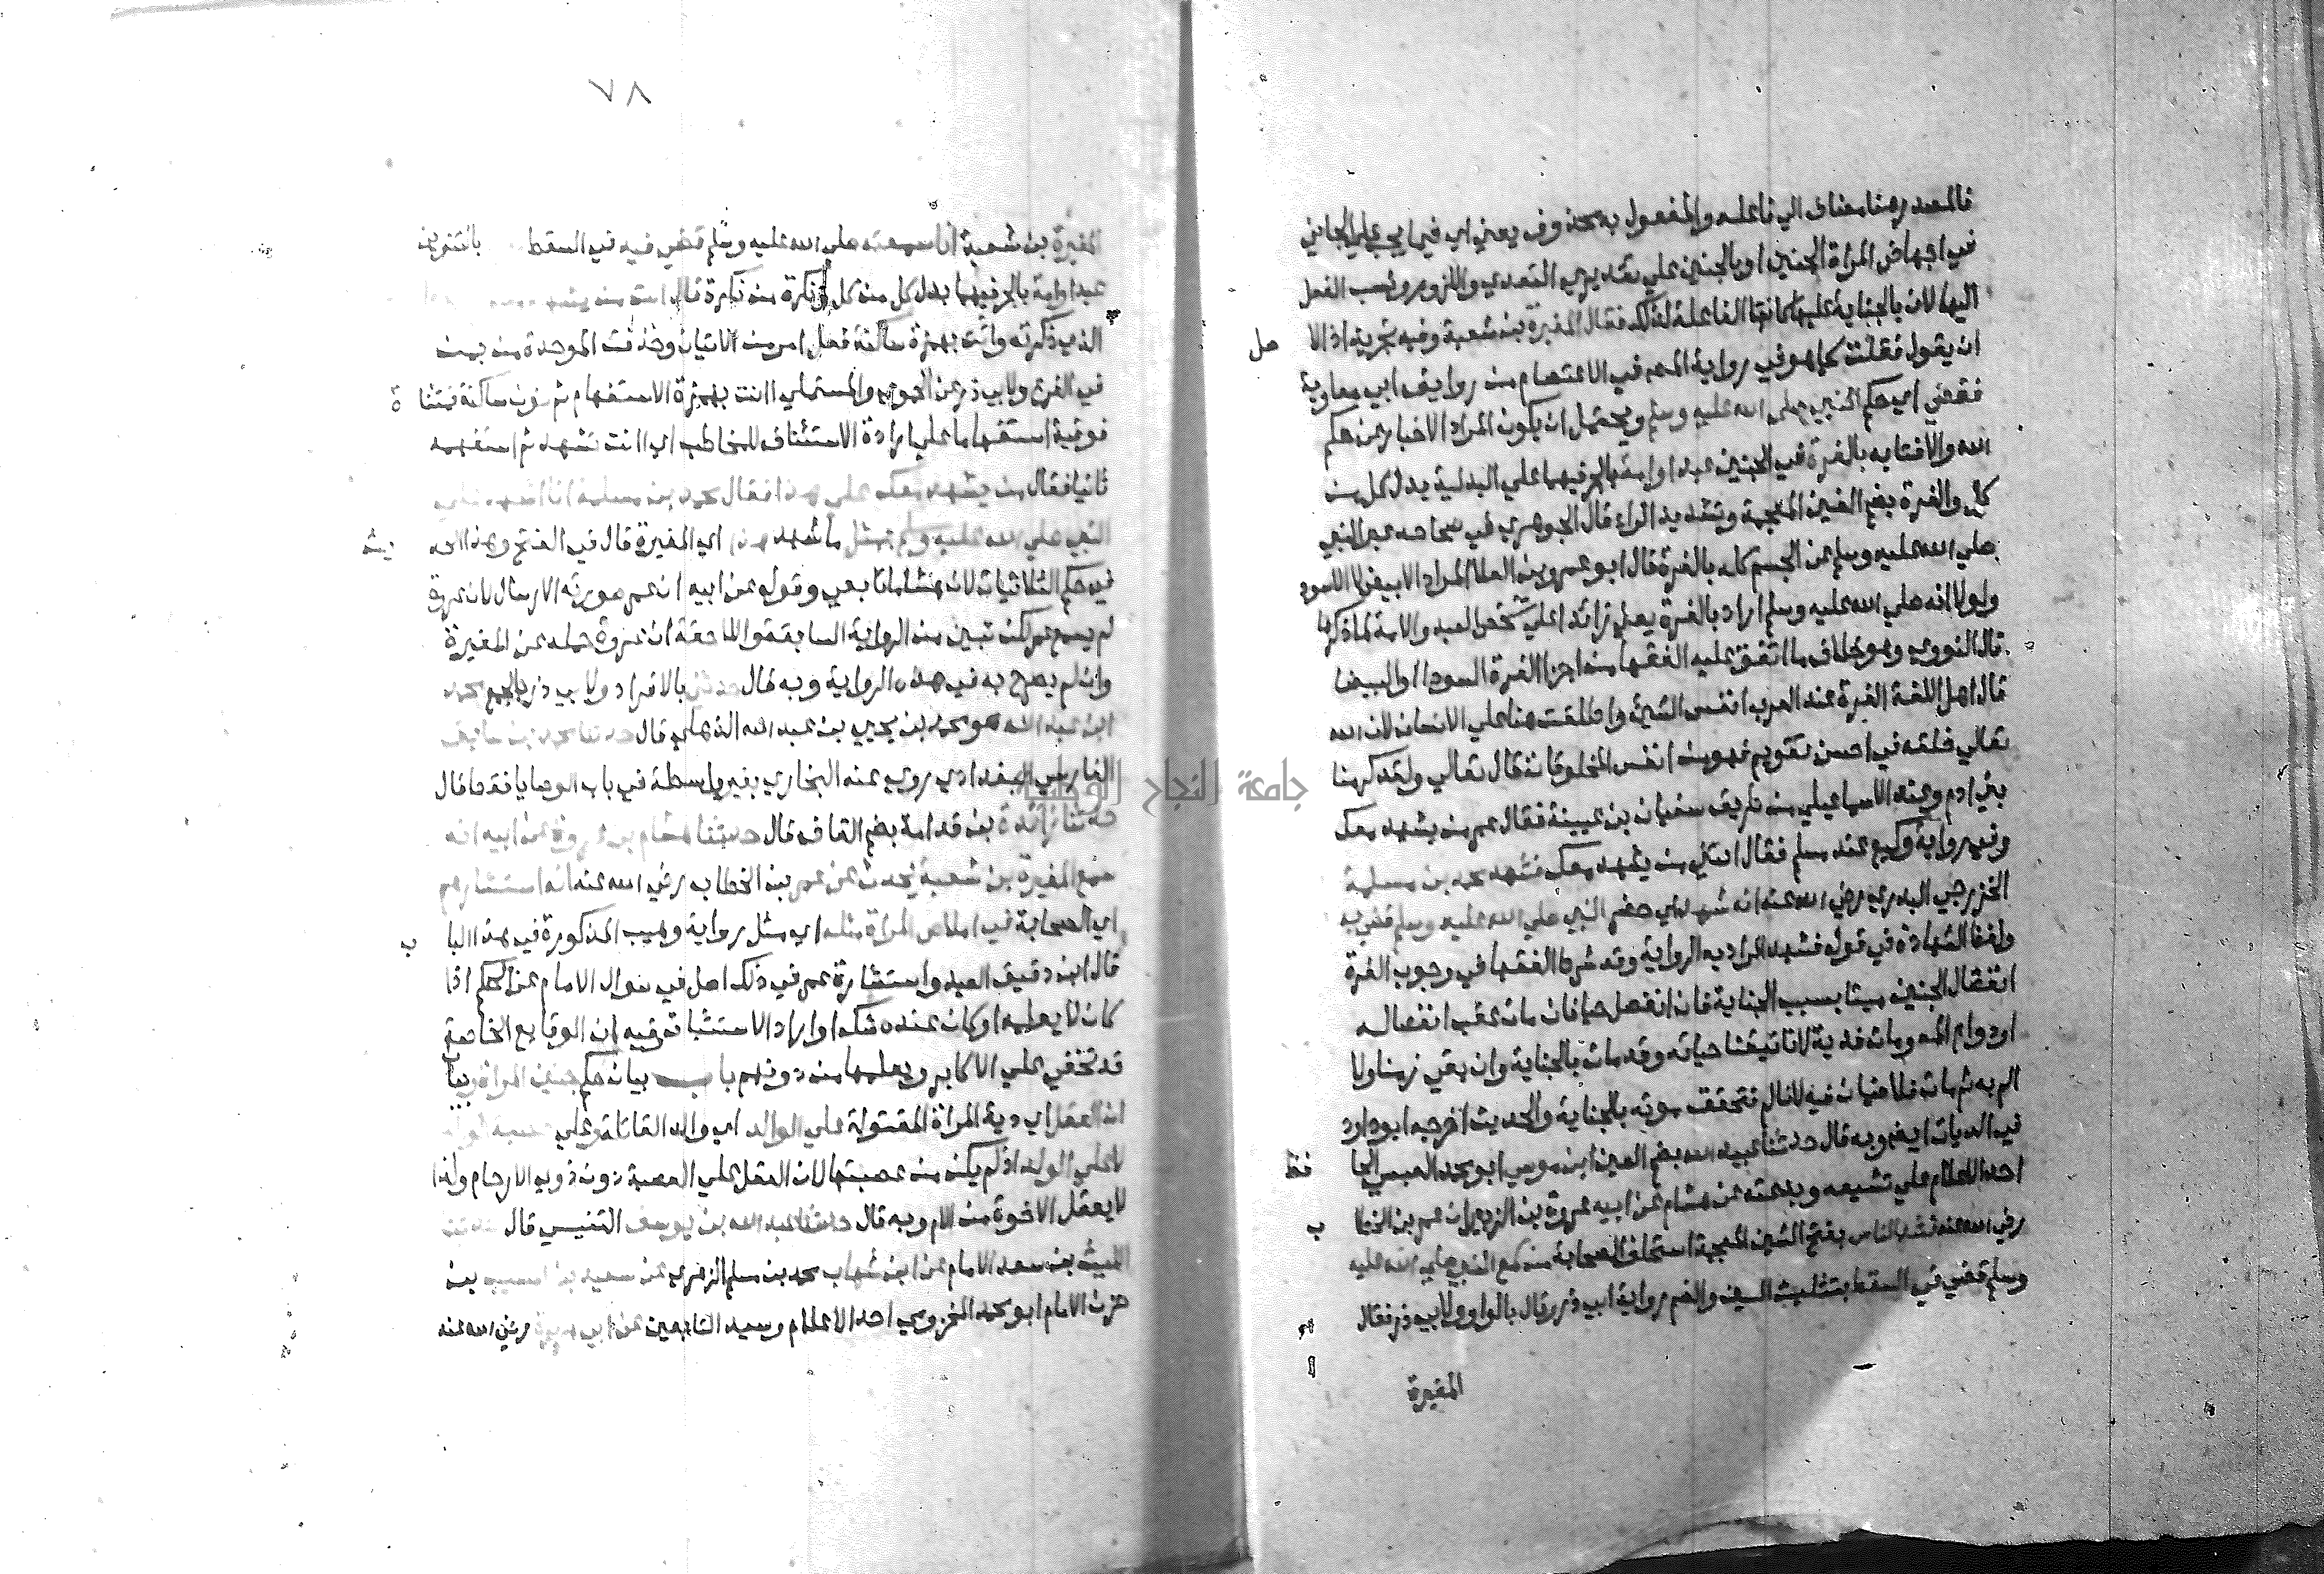 فالمصدر هنا مضاف الي فاعله والمفعول به محذوف يعني اي فيما يجب علي الجاني
في اجهاض المراة الجنين او بالجنين علي تقديري التعدي واللزوم ونسب الفعل
اليها لان بالجناية عليها كانها الفاعلة لذلك فقال المغيرة بن شعبة وفيه تجريد اذ الا صل
ان يقول فقلت كما هو في رواية المص في الاعتصام من رواية ابي معاوية
فقضي اي حكم النبي صلي الله عليه وسلم ويحتمل ان يكون المراد الاخبار عن حكم
الله والافتا به بالغرة في الجنين عبد او امة بالجر فيهما علي البدلية بدل كل من
كل والغرة بضم الغين المعجمة وتشديد الراء قال الجوهري في صحاحه عبر النبي
صلي الله عليه وسلم عن الجسم كله بالغرة قال ابو عمرو بن العلا المراد الابيض لا الاسود
ولولا انه صلي الله عليه وسلم اراد بالغرة يعني زائدا علي شخص العبد والامة لما ذكرها
قال النووي وهو خلاف ما اتفق عليه الفقها من اجزا الغرة السودا او البيضا
قال اهل اللغة الغرة عند العرب انفس الشيئ واطلقت هنا علي الانسان لان الله
تعالي خلقه في احسن تقويم فهو من انفس المخلوقات قال تعالي ولقد كرمنا
بني ادم وعند الاسماعيلي من طريق سفيان بن عيينة فقال عمر من يشهد معك
وفي رواية وكيع عند مسلم فقال ائتني من يشهد معك فشهد محمد بن مسلمة
الخزرجي البدري رضي الله عنه انه شهد اي حضر النبي صلي الله عليه وسلم قضي به
ولفظ الشهادة في قوله فشهد المراد به الرواية وقد شرط الفقها في وجوب الغرة
انفصال الجنين ميتا بسبب الجناية فان انفصل حيا فان مات عقب انفصاله
او دوام الم ومات فدية لانا تيقنا حياته وقد مات بالجناية وان بقي زمنا ولا
الم به ثم مات فلا ضمان فيه لانا لم نتحقق موته بالجناية والحديث اخرجه ابوداود
في الديات ايضا وبه قال حدثنا عبيد الله بضم العين ابن موسي ابو محمد العبسي الحا فظ
احد الاعلام علي تشيعه وبدعته عن هشام عن ابيه عروة بن الزبير ان عمر بن الخطا ب
رضي الله عنه نشد الناس بفتح الشين المعجمة استحلف الصحابة من سمع النبي صلي الله عليه
وسلم قضي في السقط بتثليث السين والضم رواية ابي ذر وقال بالواو ولابي ذر فقال
المغيرة
٧٨
المغيرة بن شعبة انا سمعته صلي الله عليه وسلم قضي فيه في السقط بالتنوين
عبد او امة بالجر فيهما بدل كل من كل و نكرة من نكرة قال ائت من يشهد
الذي ذكرته وائت بهمزة ساكنة فعل امر من الاتيان وحذفت الموحدة من بمن
في الفرع ولابي ذر عن الحموي والمستملي اانت بهمزة الاستفهام ثم نون ساكنة فمثنا ة
فوقية استفهاما علي ارادة الاستئناف للمخاطب اي اانت تشهد ثم استفهمه
ثانيا فقال من يشهد معك علي هذا فقال محمد بن مسلمة انا اشهد علي
النبي صلي الله عليه وسلم بمثل ما شهد هذا اي المغيرة قال في الفتح وهذا الحد يث
في حكم الثلاثيات لان هشاما تابعي وقوله عن ابيه ان عمر صورته الارسال لان عروة
لم يسمع عمر لكن تبين من الرواية السابقة واللاحقة ان عروة حمله عن المغيرة
وان لم يصرح به في هذه الرواية وبه قال حدثني بالافراد ولابي ذر بالجمع محمد
ابن عبد الله هو محمد بن يحيي بن عبد الله الذهلي قال حدثنا محمد بن سابق
الفارسي البغدادي روي عنه البخاري بغير واسطة في باب الوصايا فقط قال
حدثنا زائدة بن قدامة بضم القاف قال حدثنا هشام بن عروة عن ابيه انه
سمع المغيرة بن شعبة يحدث عن عمر بن الخطاب رضي الله عنه انه استشارهم
اي الصحابة في املاص المراة مثله اي مثل رواية وهيب المذكورة في هذا البا ب
قال ابن دقيق العيد واستشارة عمر في ذلك اصل في سوال الامام عن الحكم اذا
كان لا يعلمه او كان عنده شك او اراد الاستثبات وفيه ان الوقايع الخاصة
قد تخفي علي الاكابر ويعلمها من دونهم باب بيان حكم جنين المراة وبيان
ان العقل اي دية المراة المقتولة علي الوالد اي والد القاتلة وعلي عصبة الوالد
لا علي الولد اذ لم يكن من عصبتها لان العقل علي العصبة دون ذوي الارحام ولذا
لا يعقل الاخوة من الام وبه قال حدثنا عبد الله بن يوسف التنيسي قال حدثنا
الليث بن سعد الامام عن ابن شهاب محمد بن مسلم الزهري عن سعيد بن المسيب بن
حزن الامام ابو محمد المخزومي احد الاعلام وسيد التابعين عن ابي هريرة رضي الله عنه
جامعة النجاح الوطنية